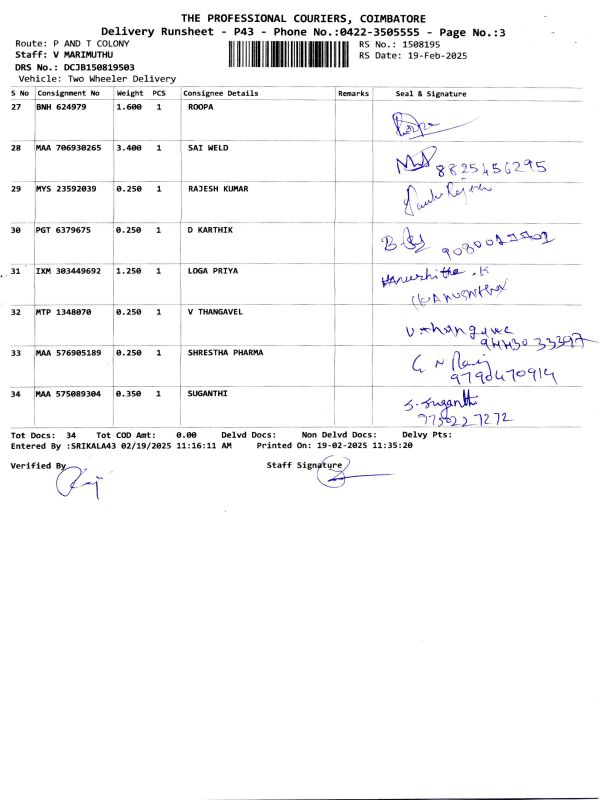 THE PROFESSIONAL COURIERS, COIMBATORE
Delivery Runsheet - P43 - Phone No.:0422-3505555 - Page No.:3
Route: P AND T COLONY RS No.: 1508195
Staff: V MARIMUTHU RS Date: 19-Feb-2025
DRS No.: DCJB150819503
Vehicle: Two Wheeler Delivery
S No Consignment No Weight PCS Consignee Details Remarks Seal & Signature
27 BNH 624979 1.600 1 ROOPA
Roopa
28 MAA 706930265 3.400 1 SAI WELD
8825456295
29 MYS 23592039 0.250 1 RAJESH KUMAR
30 PGT 6379675 0.250 1 D KARTHIK
31 IXM 303449692 1.250 1 LOGA PRIYA
32 MTP 1348070 0.250 1 V THANGAVEL
9443033397
33 MAA 576905189 0.250 1 SHRESTHA PHARMA
9790470914
34 MAA 575089304 0.350 1 SUGANTHI
S. Suganthi
9750227272
Tot Docs: 34 Tot COD Amt: 0.00 Delvd Docs: Non Delvd Docs: Delvy Pts:
Entered By :SRIKALA43 02/19/2025 11:16:11 AM Printed On: 19-02-2025 11:35:20
Verified By Staff Signature